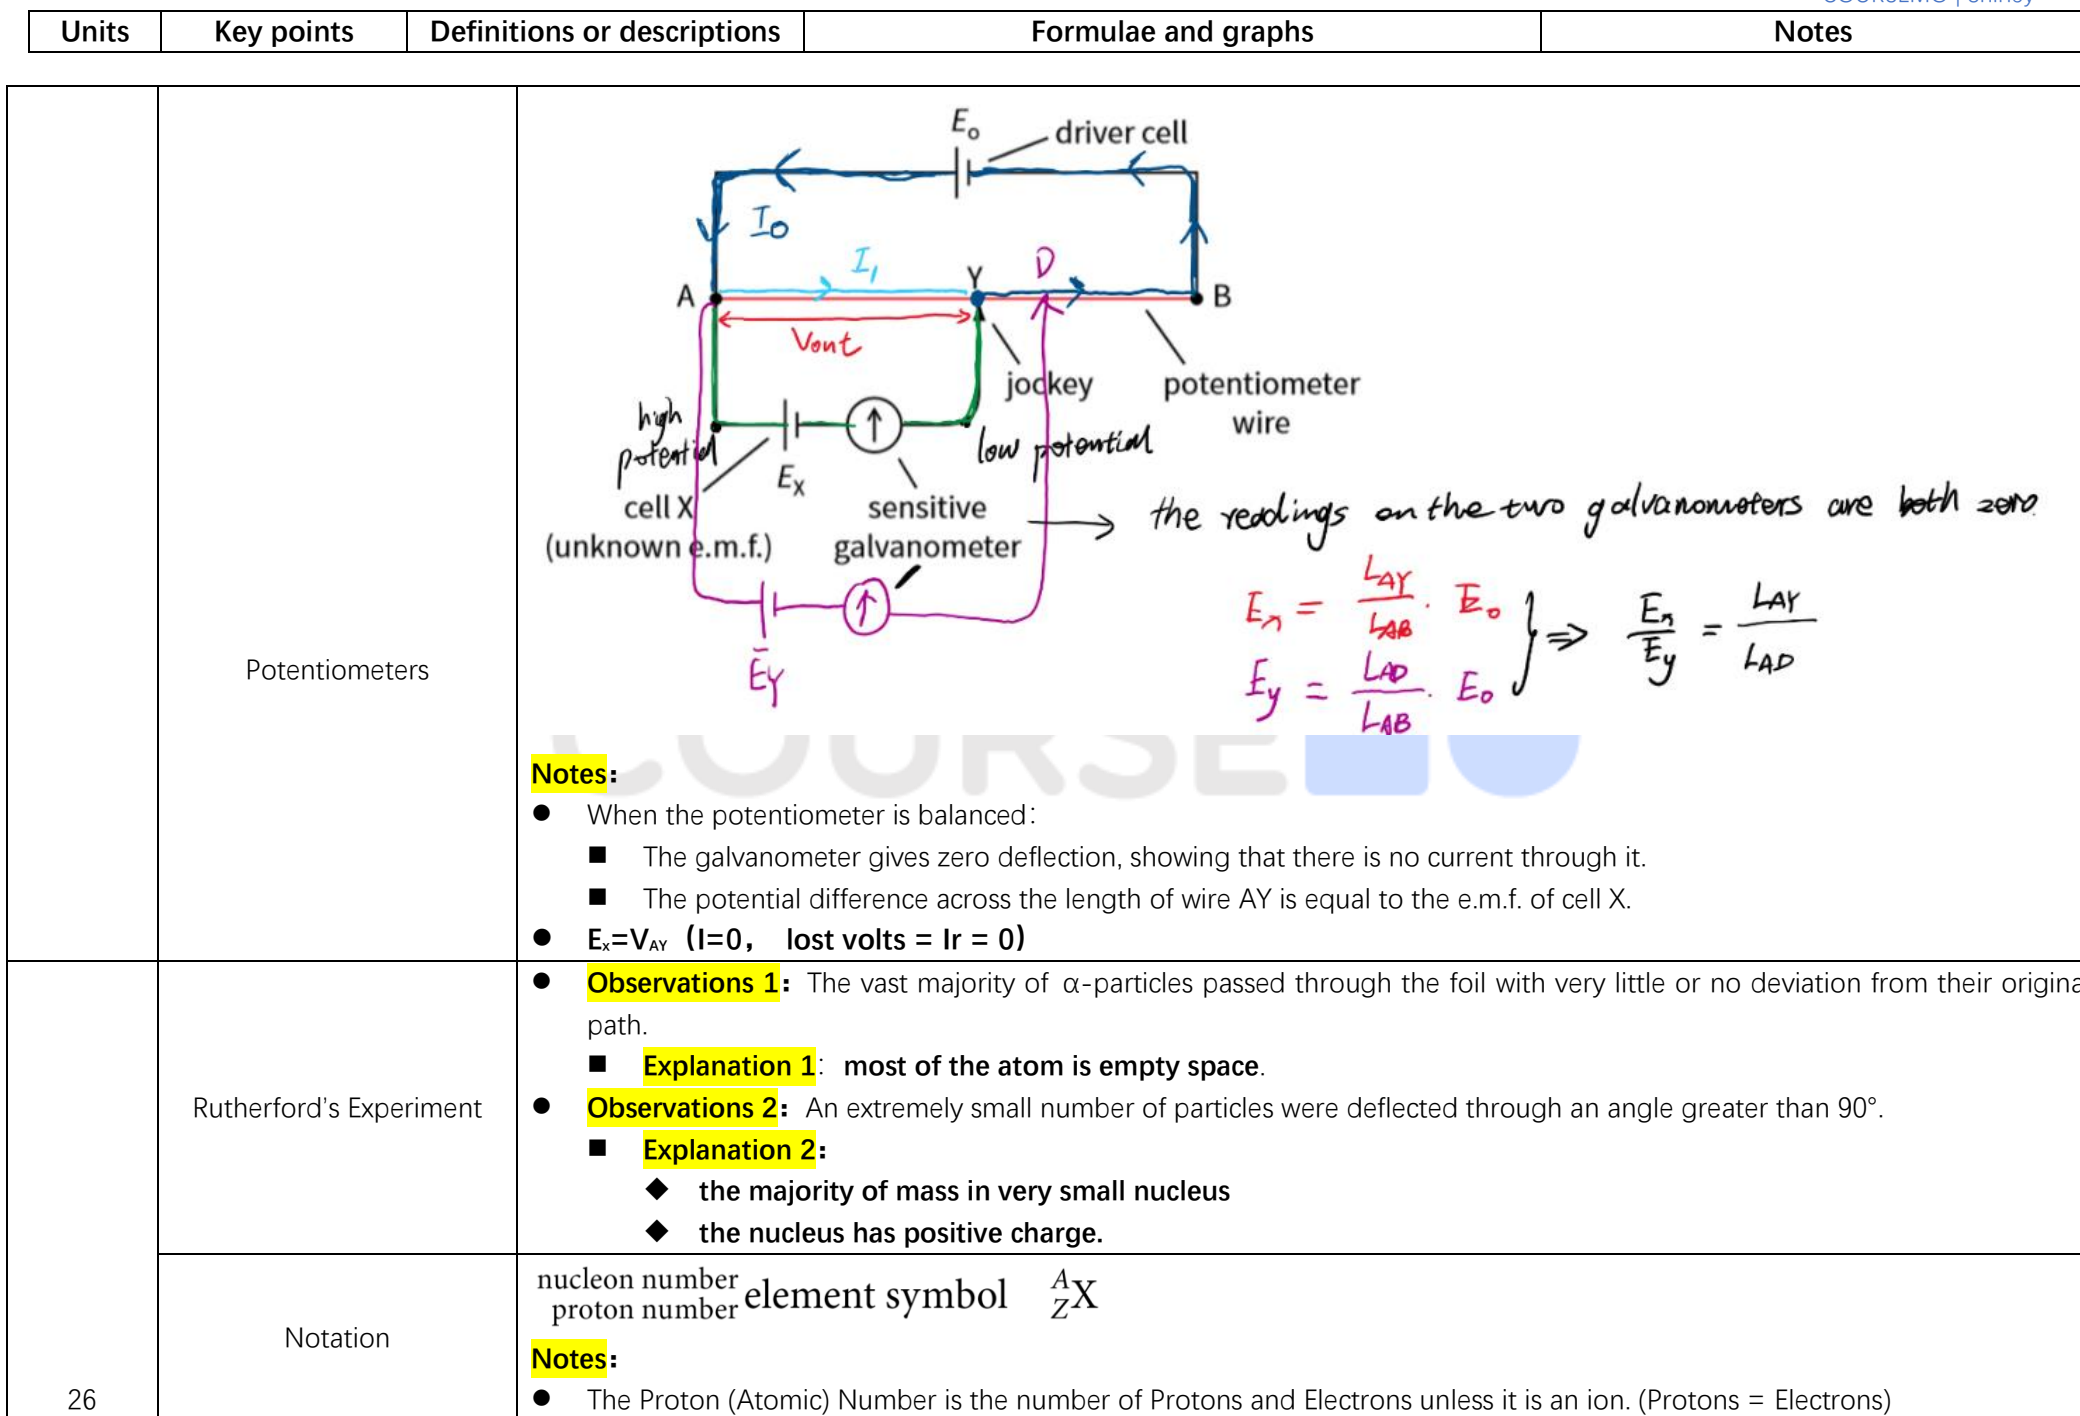 Units Key points Definitions or descriptions Formulae and graphs Notes
Potentiometers
E₀
driver cell
I₀
I₁
A
Y
D
B
Vout
jockey
potentiometer
wire
high
potential
low potential
Eₓ
cell X
(unknown e.m.f.)
sensitive
galvanometer
the readings on the two galvanometers are both zero.
Eₓ = L_AY / L_AB · E₀
E_y = L_AD / L_AB · E₀
⇒ Eₓ / E_y = L_AY / L_AD
E_Y
COURSE
Notes:
● When the potentiometer is balanced:
■ The galvanometer gives zero deflection, showing that there is no current through it.
■ The potential difference across the length of wire AY is equal to the e.m.f. of cell X.
● Eₓ=V_AY (I=0, lost volts = Ir = 0)
26
Rutherford's Experiment
● Observations 1: The vast majority of α-particles passed through the foil with very little or no deviation from their origina
path.
■ Explanation 1: most of the atom is empty space.
● Observations 2: An extremely small number of particles were deflected through an angle greater than 90°.
■ Explanation 2:
◆ the majority of mass in very small nucleus
◆ the nucleus has positive charge.
Notation
nucleon number
proton number element symbol ᴬ_Z X
Notes:
● The Proton (Atomic) Number is the number of Protons and Electrons unless it is an ion. (Protons = Electrons)